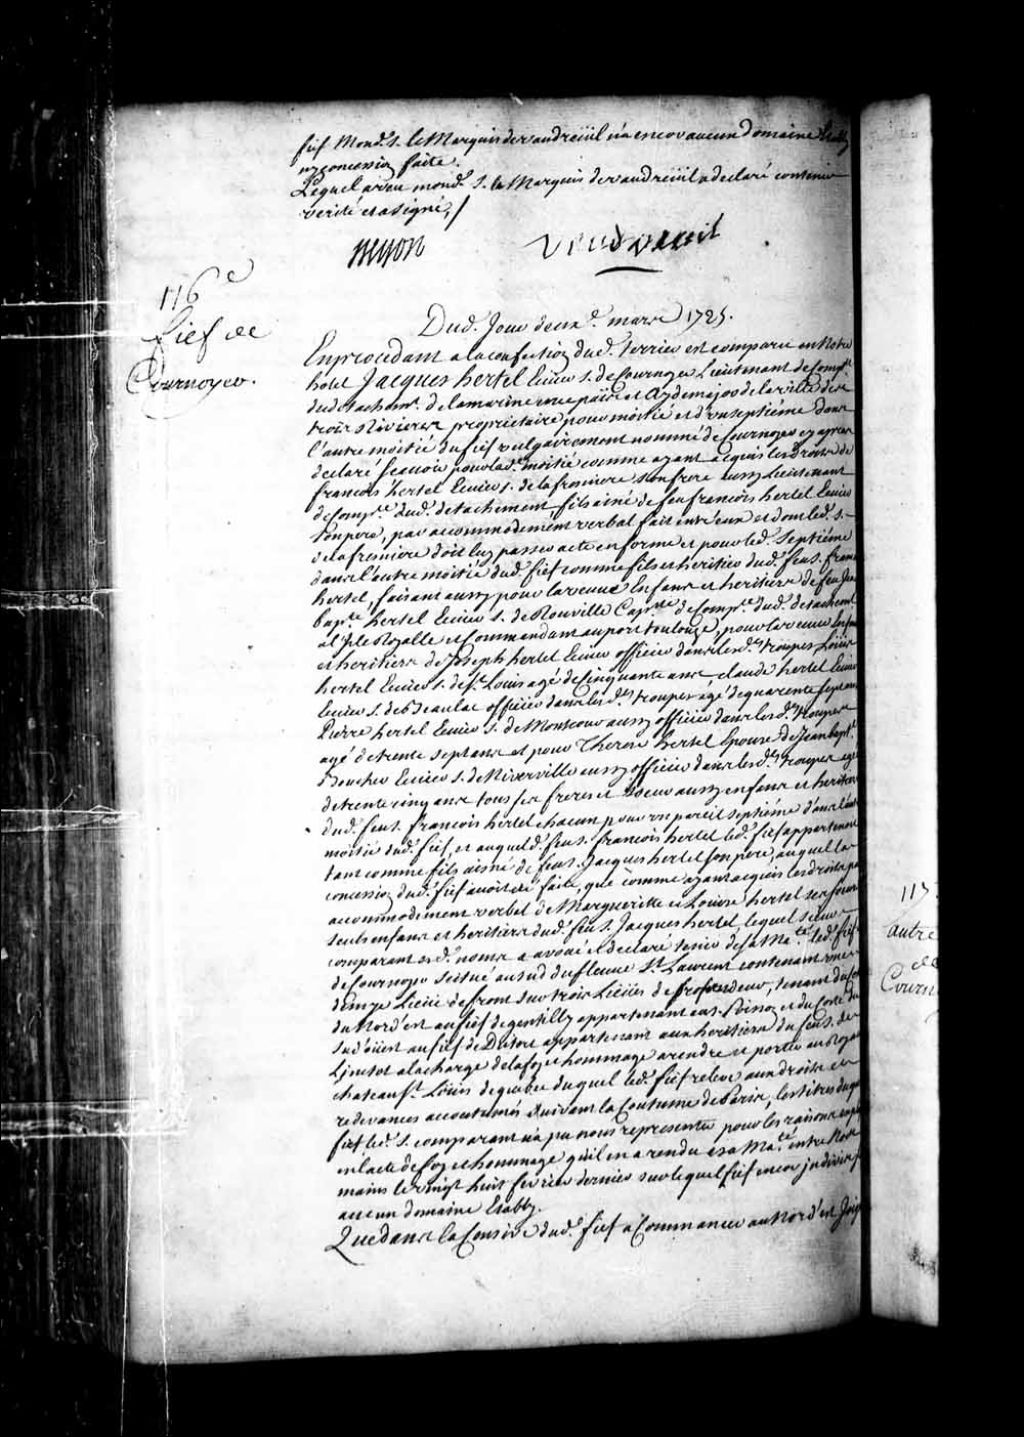 fief mond. s. le Marquis de vaudreüil n'a encor aucun Domaine
ny concession faite.
Lequel aveu mond. s. le Marquis de vaudreüil a declaré contenir
verité et a signé, /
vaudreuil
116e
fief de
Cournoyer.
Dud. Jour deux e. mars 1725.
En procedant a la confection dud. terrier est comparu en Notre
hotel Jacques hertel Ecuier s. de Cournoyer Lieutenant de Comp.
du detachem.t de la marine en ce païs et Aydemajor de la ville des
trois Rivieres proprietaire pour moitié et d'un septiéme dans
l'autre moitié du fief vulgairement nommé de Cournoyer cy apres
declaré scavoir pour lad. moitié comme ayant acquis les droits de
francois hertel Ecuier s. de la fresniere son frere aussy Lieutenant
de Comp.ie dud. detachement, fils aîné de feu francois hertel Ecuier
son pere, par accommodement verbal fait entr'eux et dont led. s.
de la fresniere doit luy passer acte en forme et pour led. septiéme
dans l'autre moitié dud. fief comme fils et heritier dud. feu s. franc
hertel, faisant aussy pour la veuve Enfans et heritiers de feu Jean
bap.te hertel Ecuier s. de Rouville Cap.ne de Comp.ie dud. detachem.t
a l'Isle Royalle et Commandant au port toulouze, pour la veuve Enfans
et heritiers de Joseph hertel Ecuier officier dans lesd. troupes, Loüis
hertel Ecuier s. de s.t Louis agé de Cinquante ans, claude hertel Ecuier
Ecuier s. de Beaulac officier dans lesd. troupes agé de quarente sept ans
Pierre hertel Ecuier s. de Montcour aussy officier dans lesd. troupes
agé de trente sept ans et pour Therese hertel Epouse de Jean bapt.e
Boucher Ecuier s. de Niverville aussy officier dans lesd. troupes agé
de trente cinq ans tous ses freres et soeur aussy enfans et heritiers
dud. feu s. francois hertel chacun pour un pareil septiéme dans l'autre
moitié dud. fief, et auquel d. feu s. francois hertel led. fief appartenoit
tant comme fils aisné de feu s. Jacques hertel son pere, auquel la
concession dud. fief avoit été faite, que comme ayant acquis les droits par
accommodement verbal de Marguerite et Louise hertel ses soeurs
seuls enfans et heritiers dud. feu s. Jacques hertel, lequel sieur
comparant esd. noms a avoué et declaré tenir de sa Ma.té led. fief
de Cournoyer scitué au sud du fleuve S.t Laurent contenant une
demye Lieüe de front sur trois Lieües de profondeur, tenant du coté
du Nord'est au fief de gentilly appartenant au s. Poisson et du Coté du
Sud'oüest au fief de Dutort appartenant aux heritiers du feu s. de
Linctot a la charge de la foy et hommage a rendre et porter au Royal
chateau S.t Loüis de quebec duquel led. fief releve aux droits et
redevances accoutumés suivant la Coutume de Paris, les titres duquel
fief led. s. comparant n'a pu nous representer pour les raisons
en l'acte de foy et hommage qu'il en a rendu a sa Ma.té entre Nos
mains le vingt huit fevrier dernier sur lequel fief encor indivis
aucun domaine Etably.
Que dans la Censive dud. fief a Commancer au Nord'est
autre
de
Courn